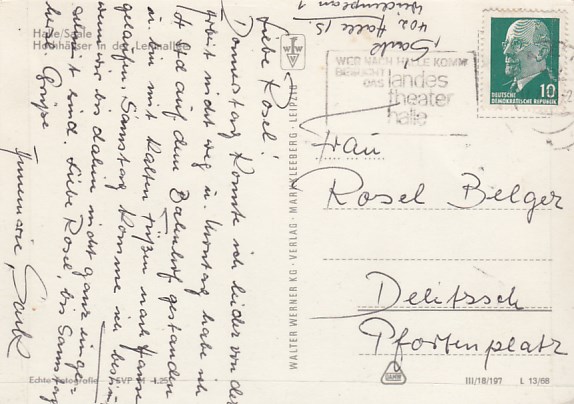 Halle/Saale
Hochhäuser in der Leninallee
Saale
402 Halle /S.
Liebe Rosel!
Donnerstag konnte ich leider von der
Arbeit nicht weg u. Montag habe ich
1 Std auf dem Bahnhof gestanden
u. bin mit kalten Füßen nach Hause
gelaufen. Samstag komme ich bestimmt
wenn wir bis dahin nicht ganz einge-
sind. Liebe Rosel, bis Samstag
Grüße
Annemarie
WER NACH HALLE KOMMT
BESUCHT
DAS landes
theater
halle
10
DEUTSCHE
DEMOKRATISCHE REPUBLIK
WALTER WERNER KG · VERLAG · MARKKLEEBERG · LEIPZIG
Frau
Rosel Belger
Delitzsch
Pfortenplatz
Echte Fotografie
III/18/197 L 13/68